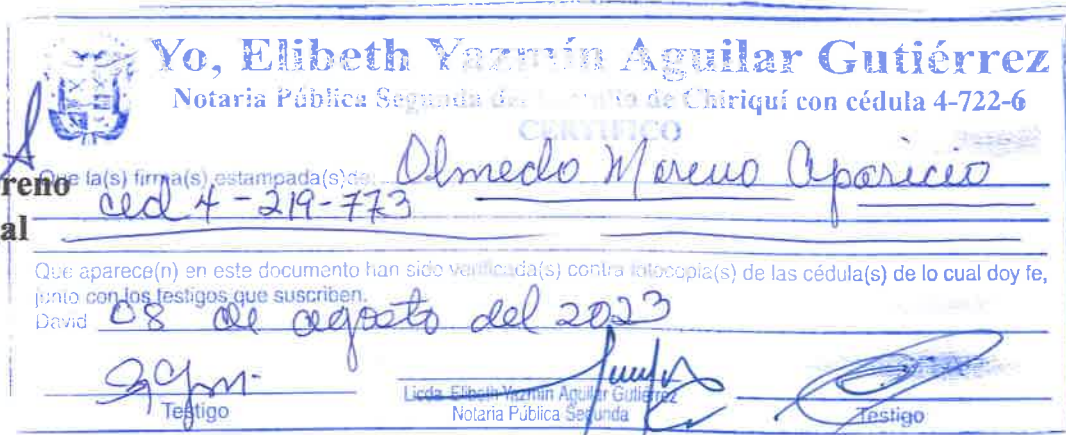 Yo, Elibeth Yazmín Aguilar Gutiérrez
Notaria Pública Segunda del Circuito de Chiriquí con cédula 4-722-6
CERTIFICO
reno
Que la(s) firma(s) estampada(s) de: Olmedo Moreno Aparicio
ced 4-219-773
al
Que aparece(n) en este documento han sido verificada(s) contra fotocopia(s) de las cédula(s) de lo cual doy fe,
junto con los testigos que suscriben.
David 08 de agosto del 2023
Testigo
Licda. Elibeth Yazmín Aguilar Gutiérrez
Notaria Pública Segunda
Testigo